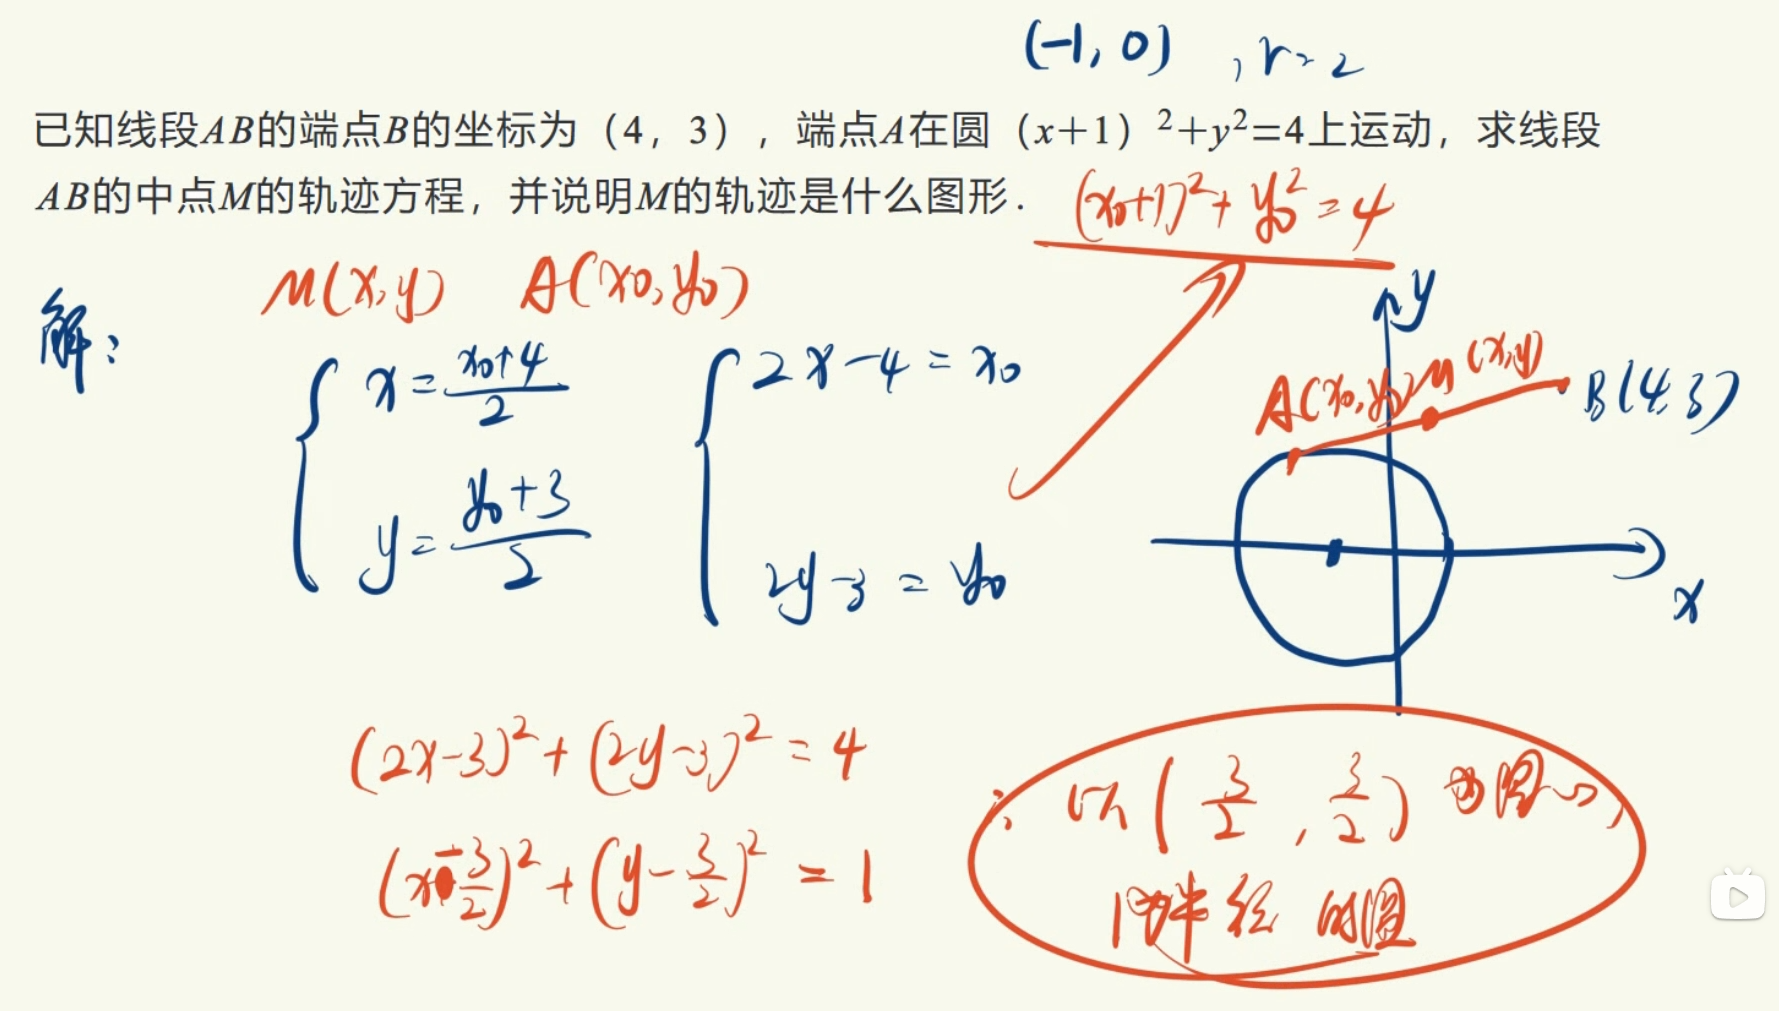 (-1, 0) , r=2
已知线段AB的端点B的坐标为（4，3），端点A在圆（x＋1）²＋y²=4上运动，求线段
AB的中点M的轨迹方程，并说明M的轨迹是什么图形．
(x₀+1)²+y₀²=4
解：
M(x,y) A(x₀,y₀)
{ x=(x₀+4)/2
y=(y₀+3)/2
{ 2x-4=x₀
2y-3=y₀
y
A(x₀,y₀) M(x,y)
B(4,3)
x
(2x-3)²+(2y-3)²=4
(x-3/2)²+(y-3/2)²=1
以(3/2,3/2)为圆心,
1为半径的圆